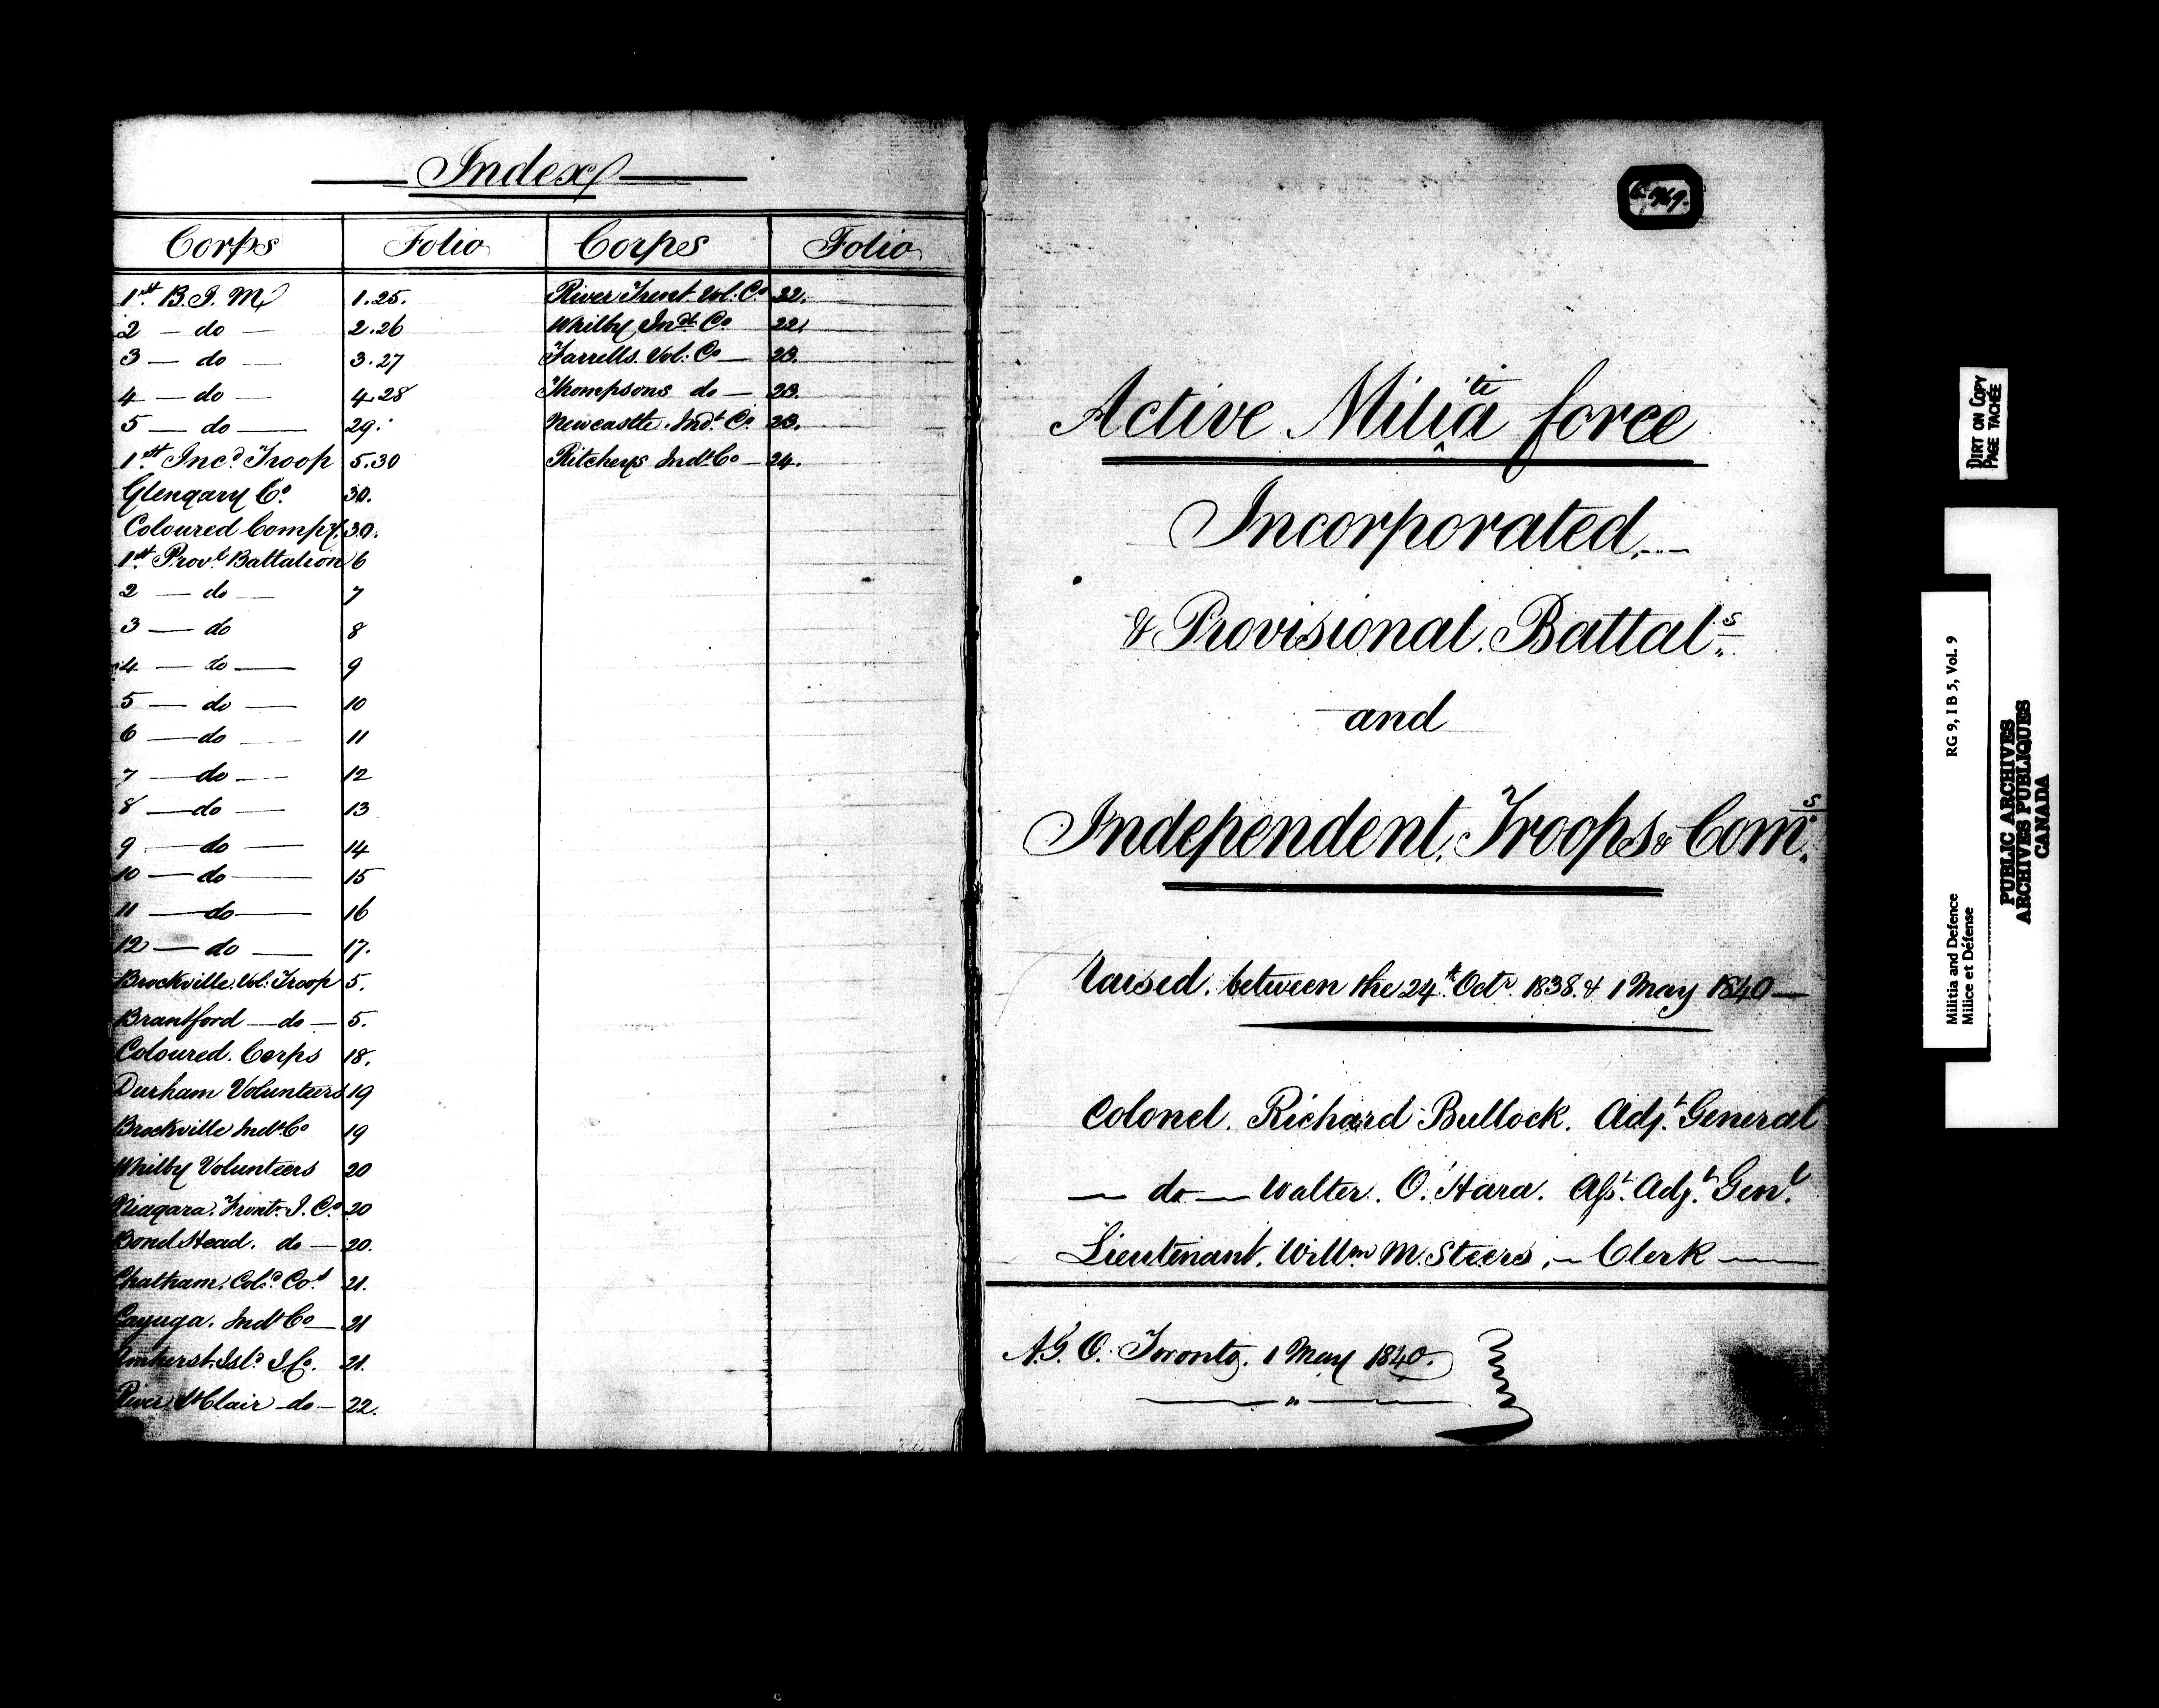 Index
Corps Folio Corpes Folio
1st B.I.M 1.25.
2 — do — 2.26
3 — do — 3.27
4 — do — 4.28
5 — do — 29.
1st Incd Troop 5.30
Glengary Co. 30.
Coloured Compy. 30.
1st Provl Battalion 6
2 — do — 7
3 — do 8
4 — do — 9
5 — do — 10
6 — do — 11
7 — do — 12
8 — do — 13
9 — do — 14
10 — do — 15
11 — do — 16
12 — do — 17.
Brockville Vol: Troop 5.
Brantford — do — 5.
Coloured. Corps 18.
Durham Volunteers 19
Brockville Indt Co 19
Whitby Volunteers 20
Niagara. Frontr I. Co 20
Bond Head. do — 20.
Chatham. Cold Co 21.
Cayuga. Indt Co — 21
Amherst Isld I. Co. 21.
River St Clair — do — 22.
River Trent Vol: Co 22.
Whitby Indt Co 22
Farrells Vol: Co — 23.
Thompsons do — 23.
Newcastle Indt Co. 23.
Ritcheys Indt Co — 24.
Active Militia force
Incorporated,
& Provisional. Battals
and
Independent, Troops & Coms
Raised. between the 24th Octr 1838. & 1 May 1840 —
Colonel. Richard Bullock. Adjt General
— do — Walter. O'Hara. Asst. Adjt Genl
Lieutenant, Willm M. Steers, — Clerk —
A.G. O. Toronto. 1 May 1840.
DIRT ON COPY
PAGE TACHÉE
Militia and Defence RG 9, I B 5, Vol. 9
Milice et Défense
PUBLIC ARCHIVES
ARCHIVES PUBLIQUES
CANADA